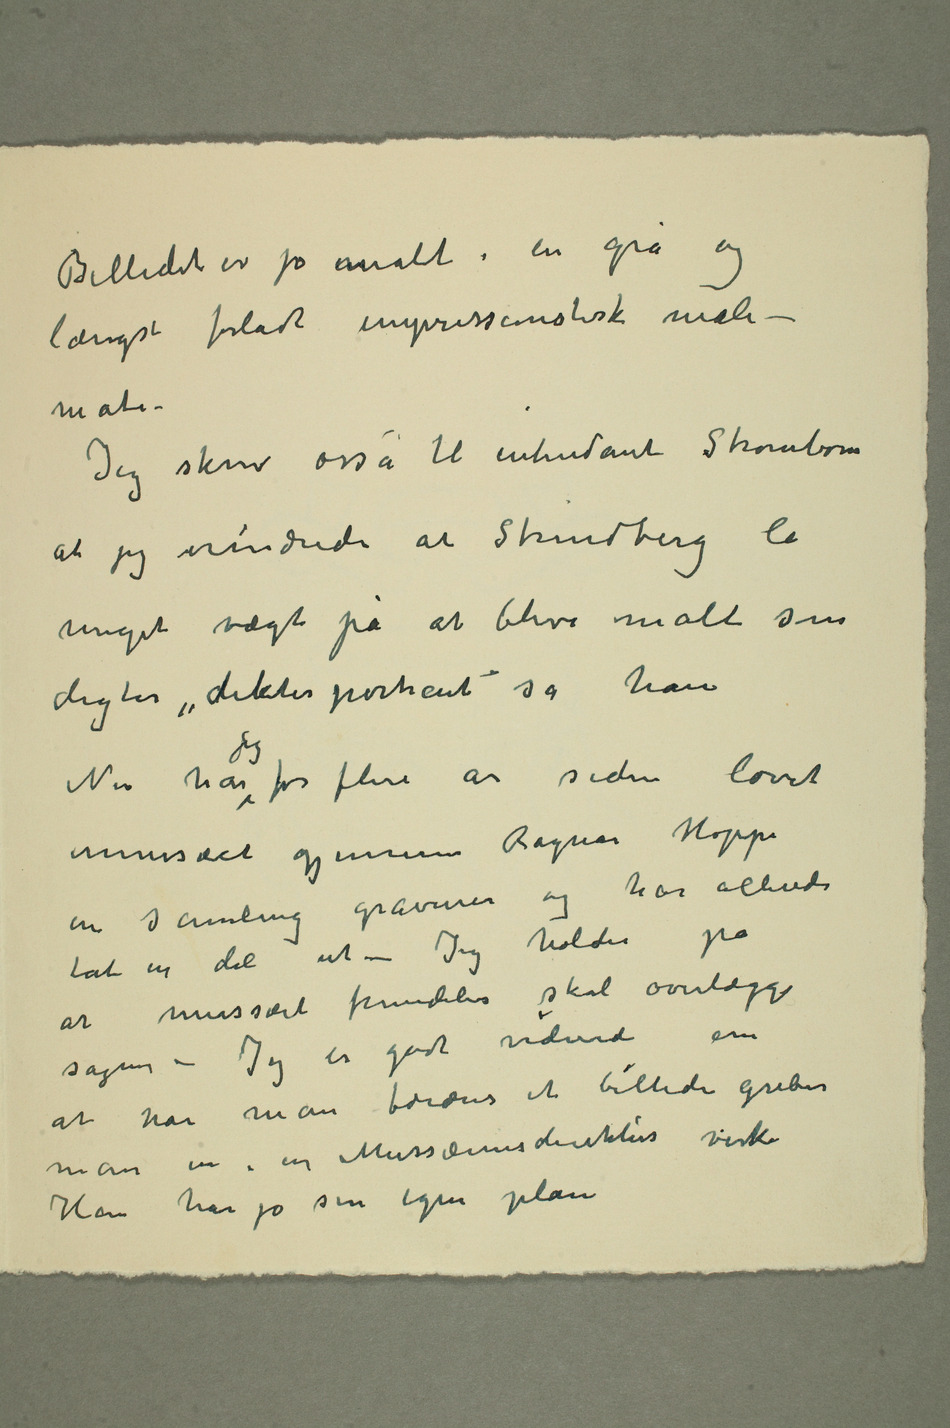 Billedet er jo malt i en grå og
længst forladt impressionistisk male–
måte.
Jeg skrev osså til intendant Strömbom
at jeg erindrede at Strindberg la
meget vægt på at blive malt som
digter „dikter portræt“ sa han
Nu har jeg for flere år siden lovet
musæet gjennem Ragnar Hoppe
en samling gravurer og har allerede
tat en del ut – Jeg holder på
at mussæet fremdeles skal overlægge
sagen – Jeg er godt vidende om
at når man forærer et billede griber
man in i en Mussæumsdirektørs virke
Han har jo sin egen plan